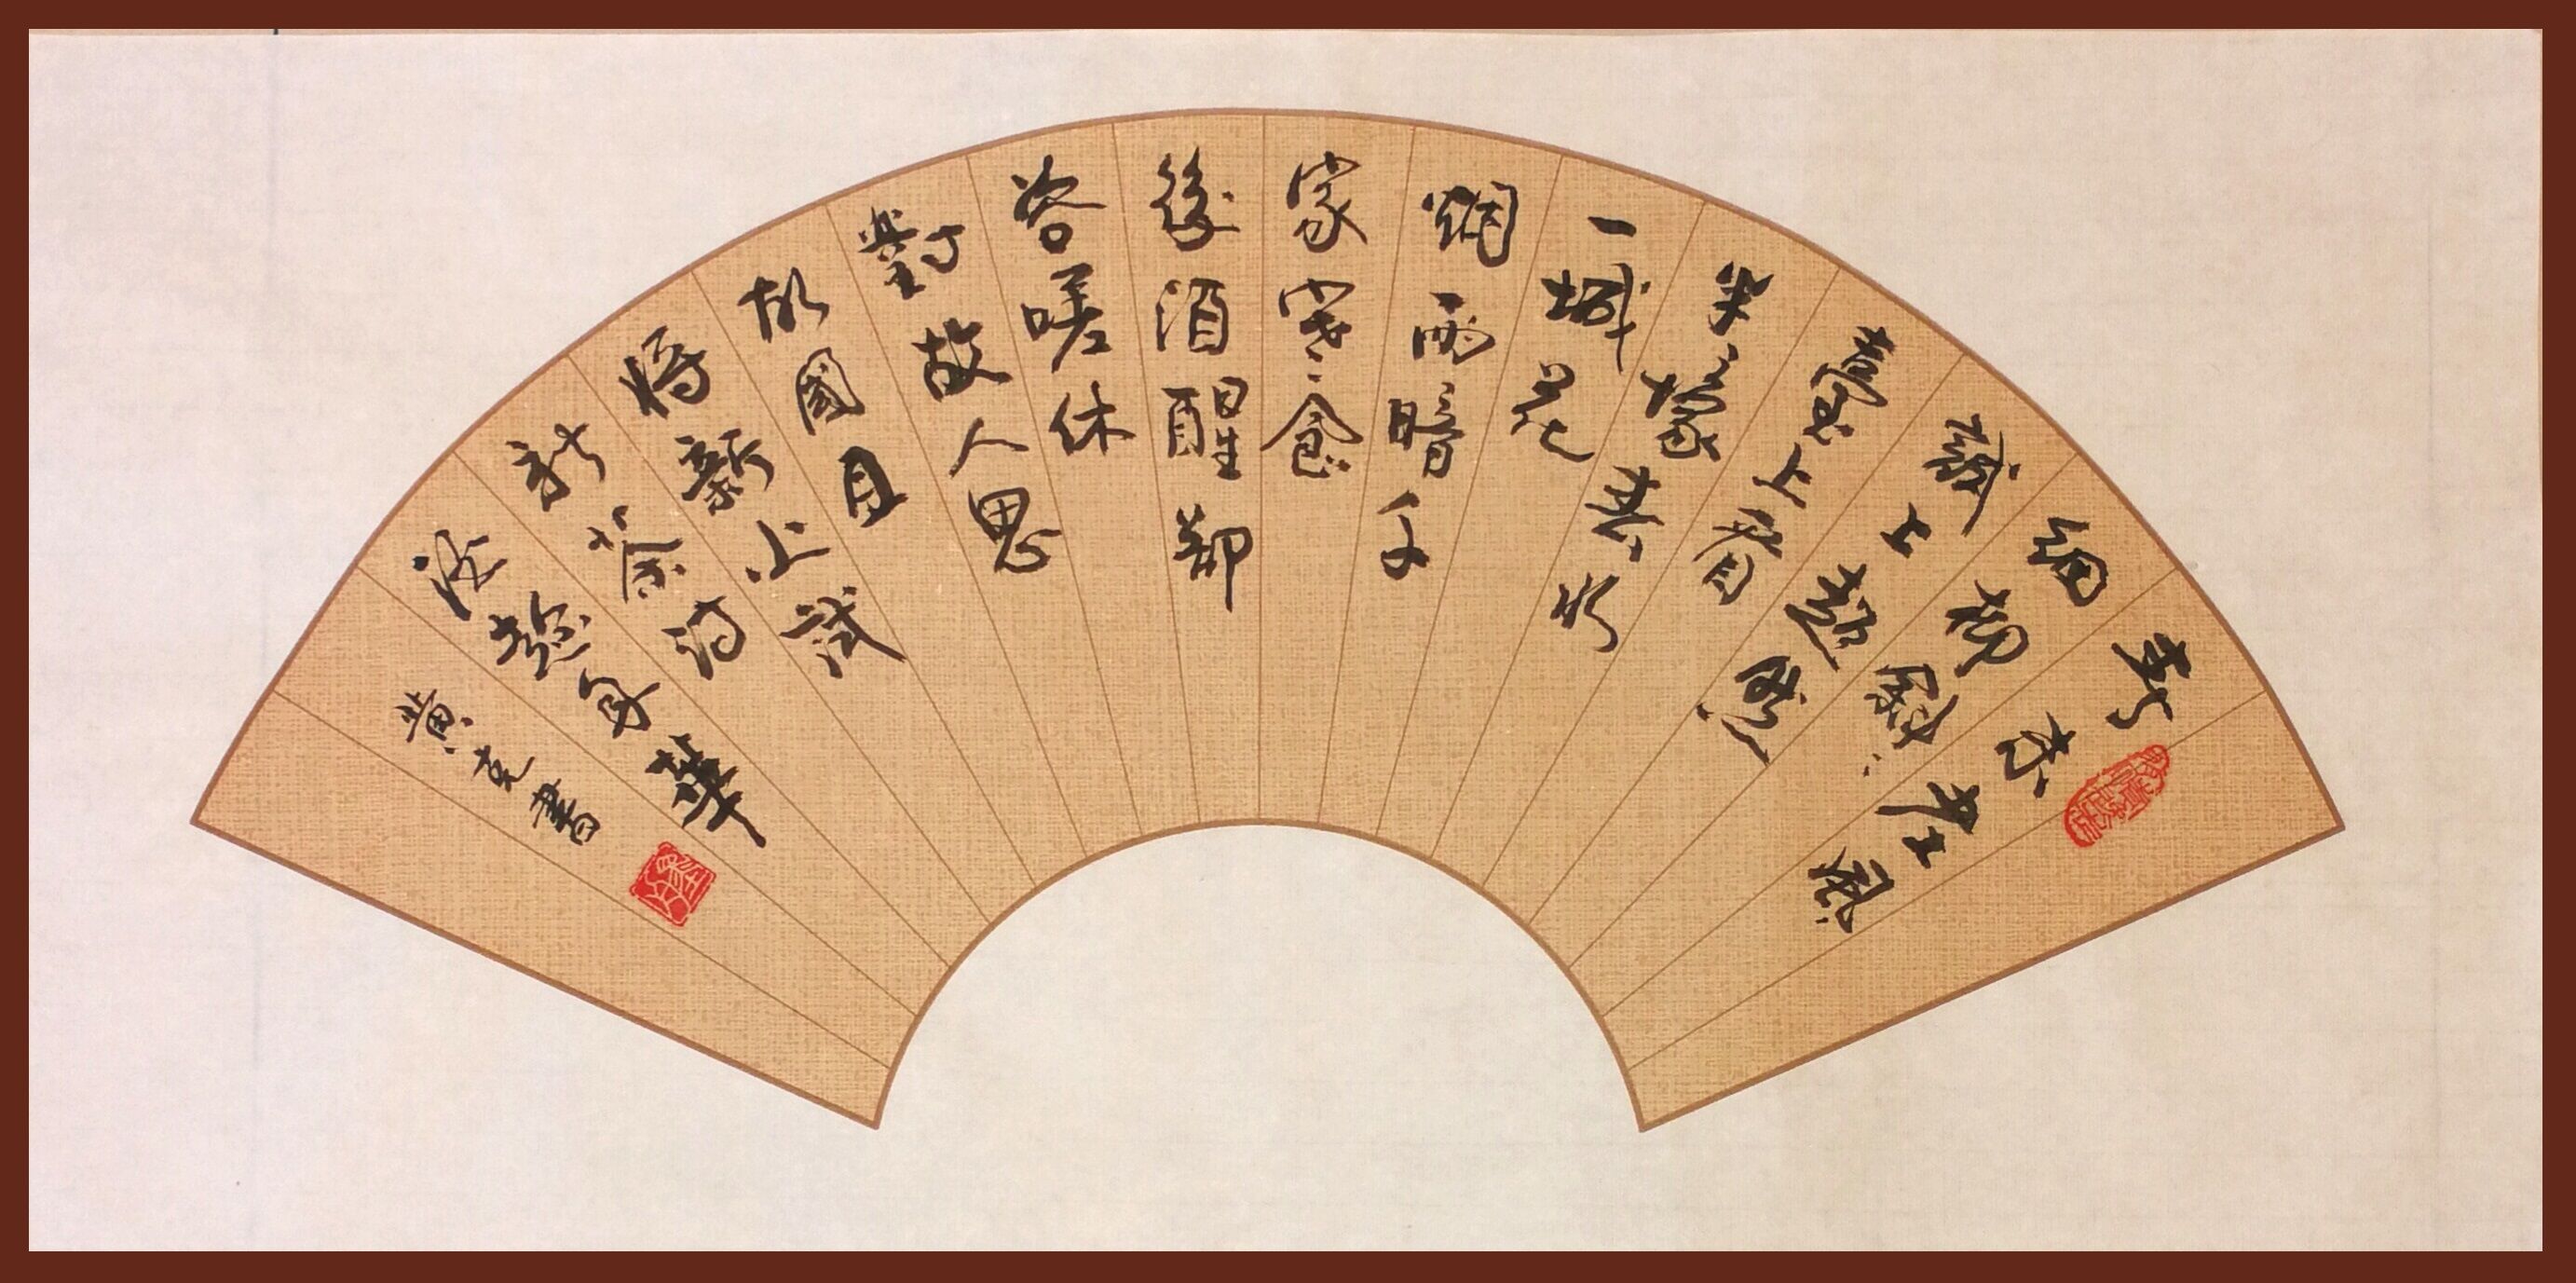 春未老風
細柳斜〻
試上超然
臺上看
半壕春水
一城花
烟雨暗千
家寒食
後酒醒卻
咨嗟休
對故人思
故國且
將新火試
新茶詩
酒趁年華
黄克書